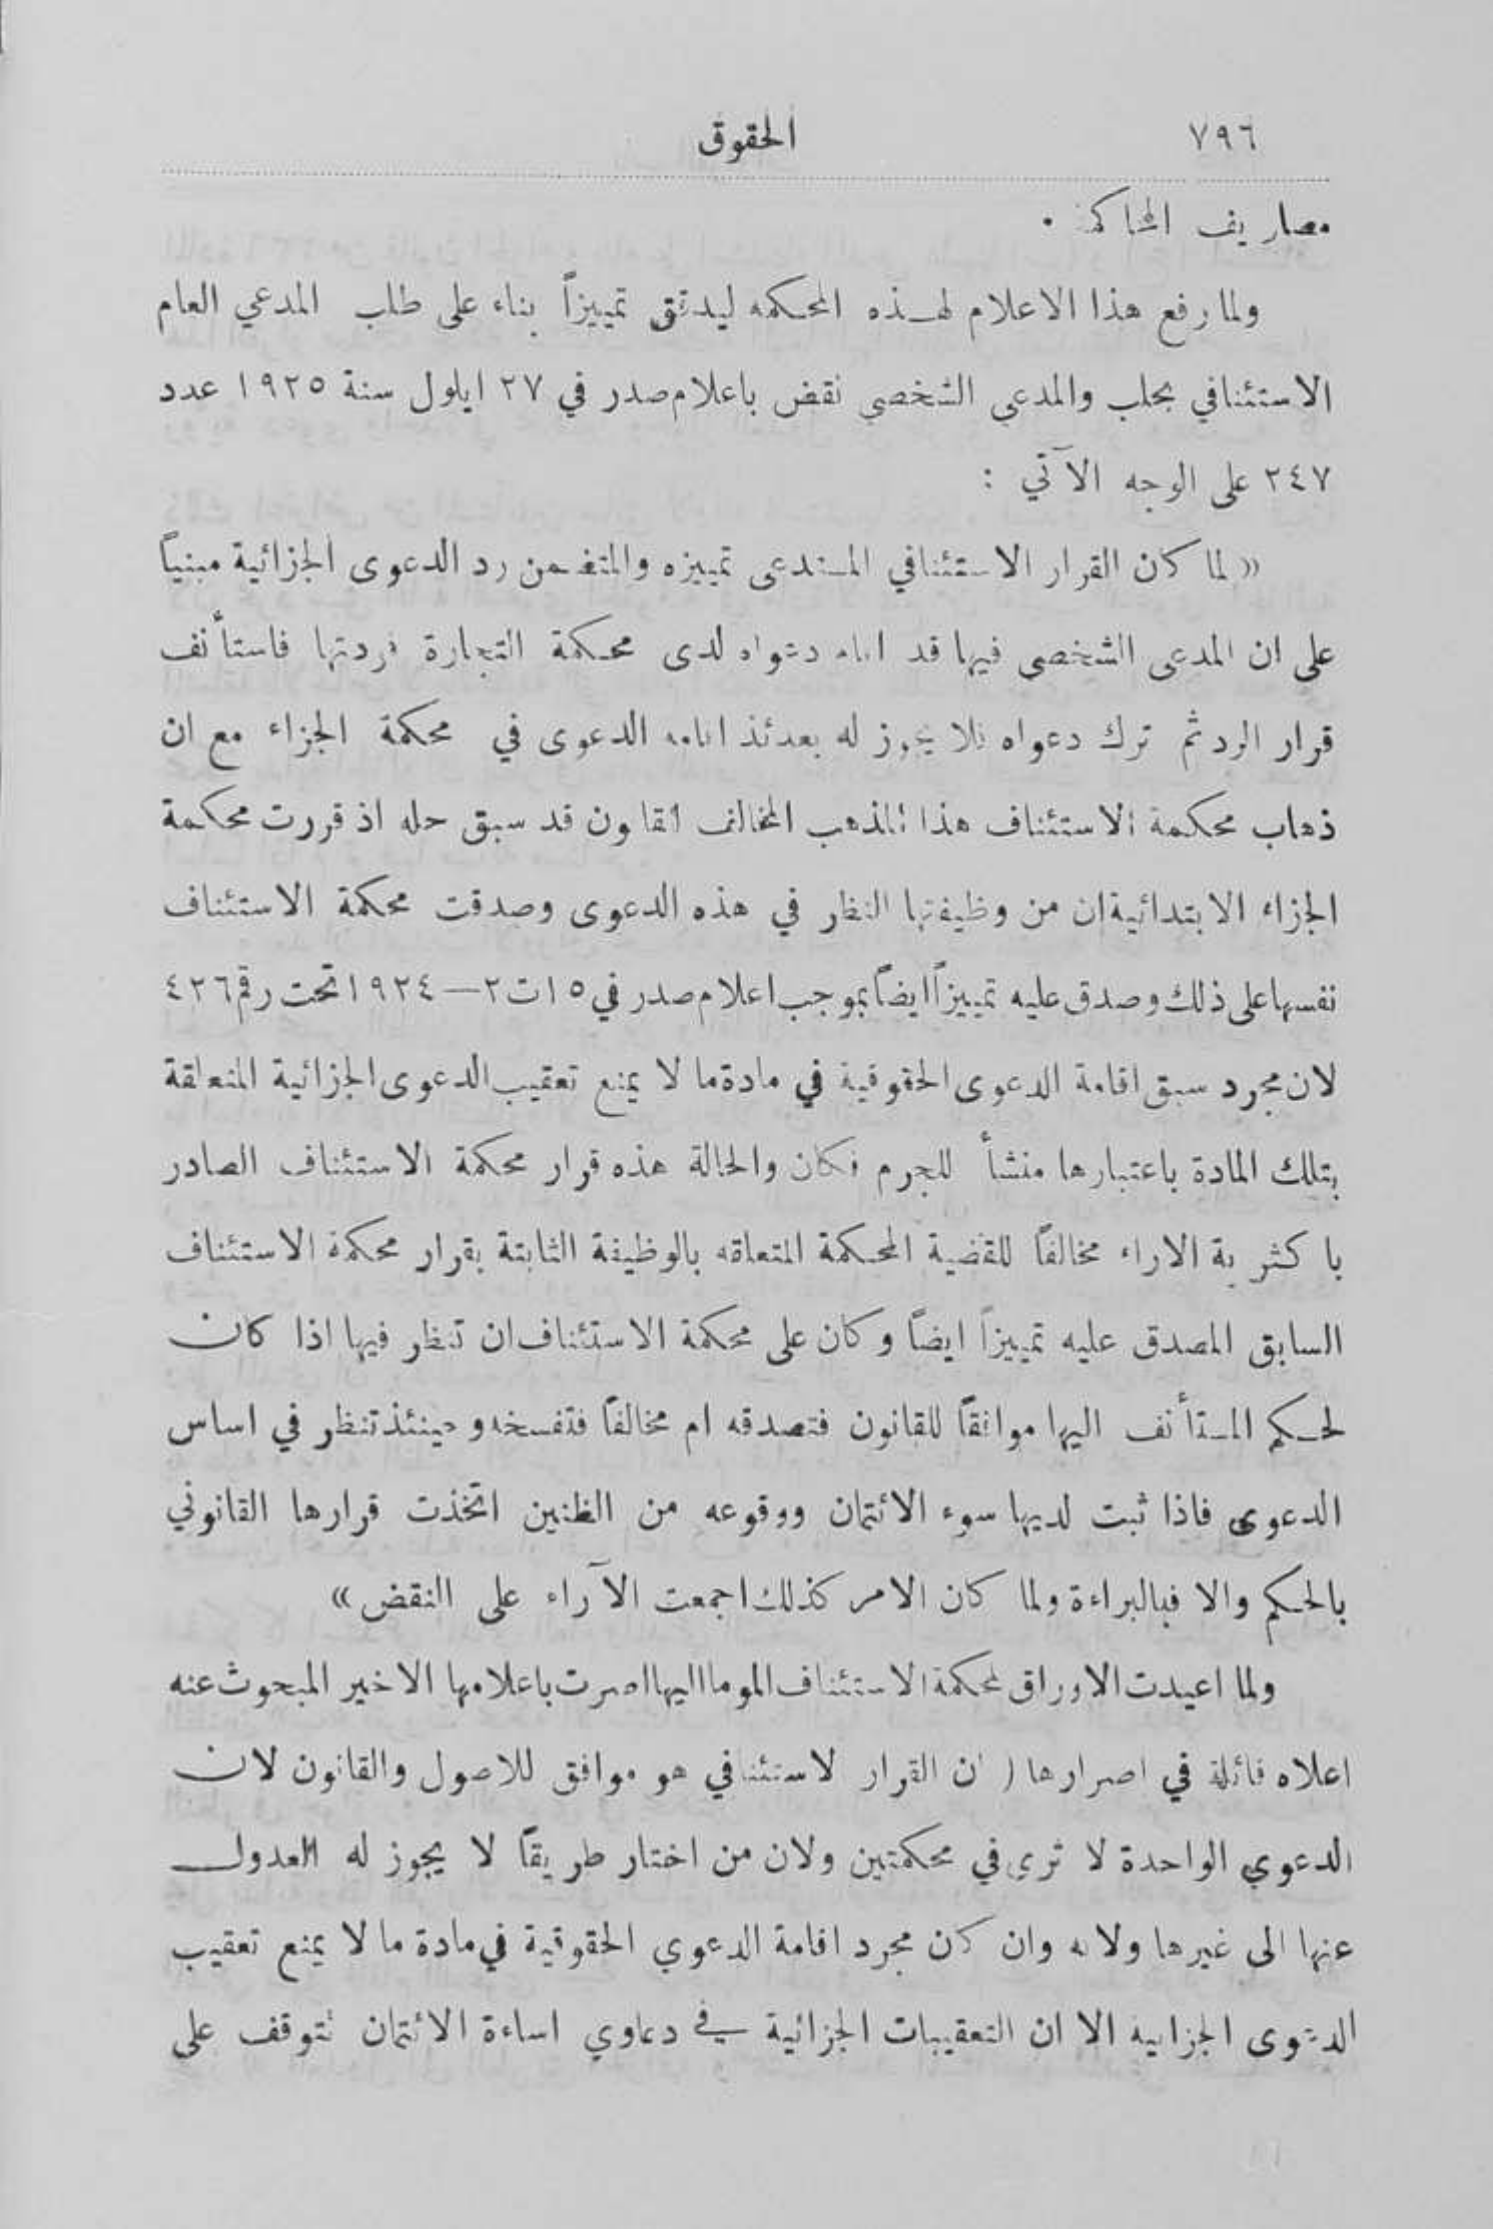 ٧٩٦
الحقوق
مصاريف المحاكمة .
ولما رفع هذا الاعلام لهذه المحكمه ليدقق تمييزاً بناء على طلب المدعي العام
الاستئنافي بحلب والمدعى الشخصي نقض باعلام صدر في ٢٧ ايلول سنة ١٩٢٥ عدد
٢٤٧ على الوجه الآتي :
« لما كان القرار الاستئنافي المستدعى تمييزه والمتضمن رد الدعوى الجزائية مبنياً
على ان المدعى الشخصي فيها قد اقام دعواه لدى محكمة التجارة فردتها فاستأنف
قرار الرد ثم ترك دعواه فلا يجوز له بعدئذ اقامه الدعوى في محكمة الجزاء مع ان
ذهاب محكمة الاستئناف هذا المذهب المخالف القانون قد سبق حله اذ قررت محكمة
الجزاء الابتدائية ان من وظيفتها النظر في هذه الدعوى وصدقت محكمة الاستئناف
نفسها على ذلك وصدق عليه تمييزاً ايضاً بموجب اعلام صدر في ١٥ ت ٢ — ١٩٢٤ تحت رقم ٤٢٦
لان مجرد سبق اقامة الدعوى الحقوقية في مادة ما لا يمنع تعقيب الدعوى الجزائية المتعلقة
بتلك المادة باعتبارها منشأ للجرم فكان والحالة هذه قرار محكمة الاستئناف الصادر
باكثرية الاراء مخالفاً للقضية المحكمة المتعلقه بالوظيفة الثابتة بقرار محكمة الاستئناف
السابق المصدق عليه تمييزاً ايضاً وكان على محكمة الاستئناف ان تنظر فيها اذا كان
لحكم المستأنف اليها موافقاً للقانون فتصدقه ام مخالفاً فتفسخه وحينئذ تنظر في اساس
الدعوى فاذا ثبت لديها سوء الائتمان ووقوعه من الظنين اتخذت قرارها القانوني
بالحكم والا فبالبراءة ولما كان الامر كذلك اجمعت الآراء على النقض »
ولما اعيدت الاوراق لمحكمة الاستئناف الموما اليها اصرت باعلامها الاخير المبحوث عنه
اعلاه قائلة في اصرارها ( ان القرار لاستئنافي هو موافق للاصول والقانون لان
الدعوي الواحدة لا ترى في محكمتين ولان من اختار طريقاً لا يجوز له العدول
عنها الى غيرها ولانه وان كان مجرد اقامة الدعوي الحقوقية في مادة ما لا يمنع تعقيب
الدعوى الجزاييه الا ان التعقيبات الجزائية في دعاوي اساءة الائتمان تتوقف على